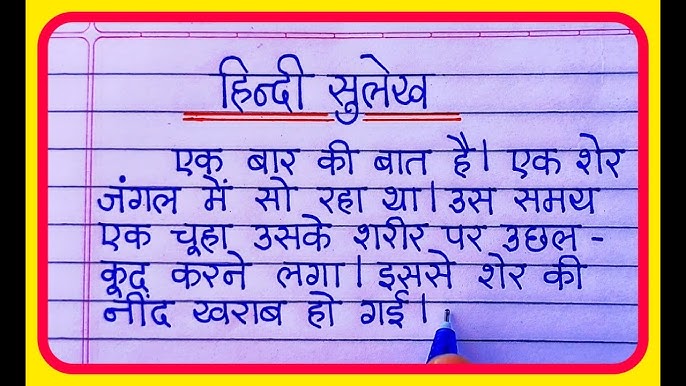 हिन्दी सुलेख
एक बार की बात है। एक शेर
जंगल में सो रहा था। उस समय
एक चूहा उसके शरीर पर उछल -
कूद करने लगा। इससे शेर की
नींद खराब हो गई।